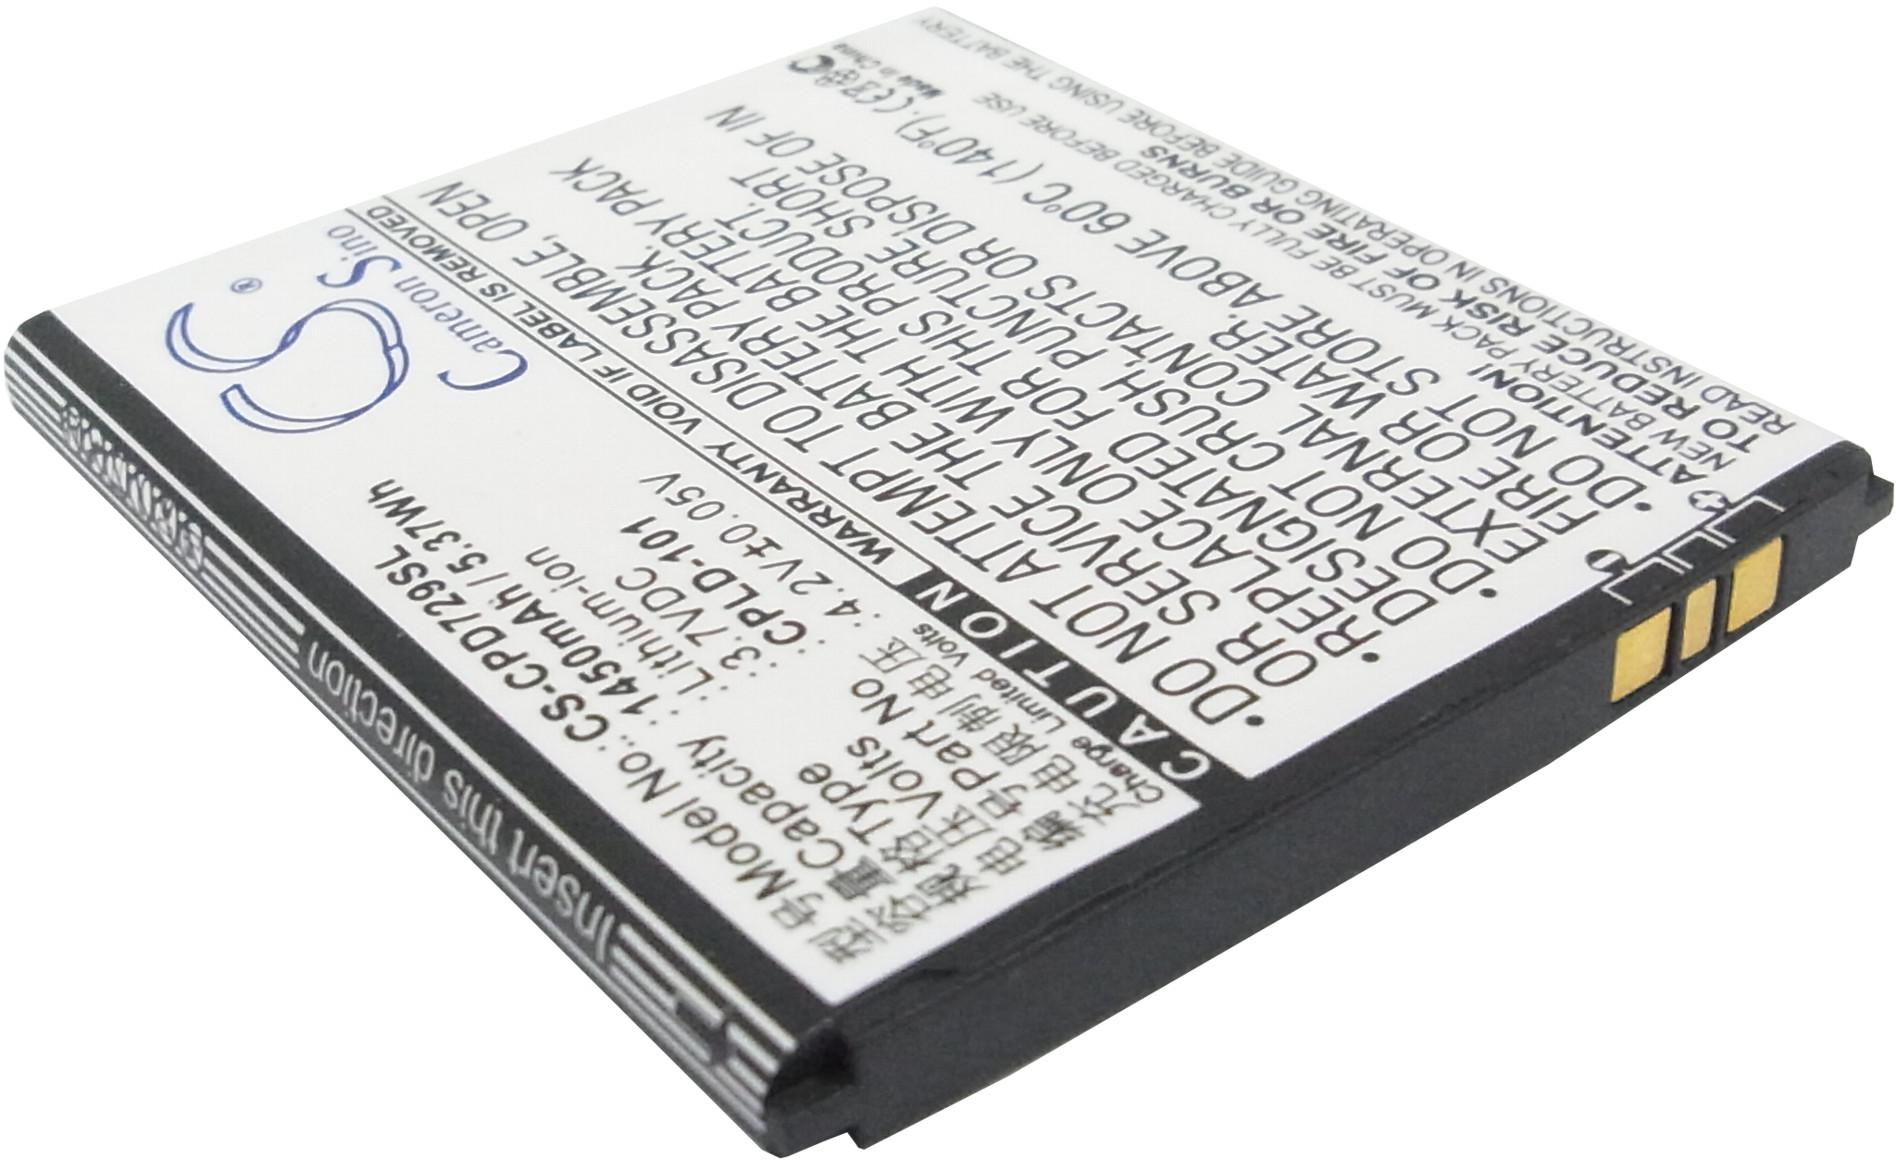 CS®
Cameron Sino
型号Model No.: CS-CPD729SL
容量Capacity : 1450mAh / 5.37Wh
规格Type : Lithium-ion
电压Volts : 3.7VDC
电编号Part No : CPLD-101
充电限制电压 : 4.2V±0.05V
Charge Limited Volts
WARRANTY VOID IF LABEL IS REMOVED
CAUTION
•DO NOT ATTEMPT TO DISASSEMBLE, OPEN
OR SERVICE THE BATTERY PACK.
•REPLACE ONLY WITH THE BATTERY PACK
DESIGNATED FOR THIS PRODUCT.
•DO NOT CRUSH, PUNCTURE SHORT
EXTERNAL CONTACTS OR DISPOSE OF IN
FIRE OR WATER.
•DO NOT STORE ABOVE 60°C (140°F).
Made in China
ATTENTION!
NEW BATTERY PACK MUST BE FULLY CHARGED BEFORE USE
TO REDUCE RISK OF FIRE OR BURNS
READ INSTRUCTIONS IN OPERATING GUIDE BEFORE USING THE BATTERY
Insert this direction